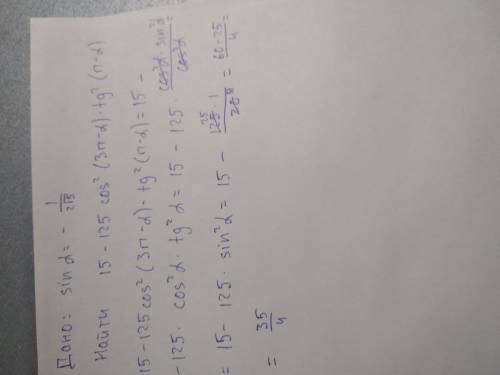 Дано: sin α = - 1/(2√5)
Найти 15 - 125 cos² (3π-α) · tg² (π-α)
15 - 125 cos² (3π-α) · tg² (π-α) = 15 -
- 125 · cos² α · tg² α = 15 - 125 · (cos²α · sin²α)/cos²α =
= 15 - 125 · sin² α = 15 - (125 · 1)/20 = (60 - 25)/4 =
= 35/4